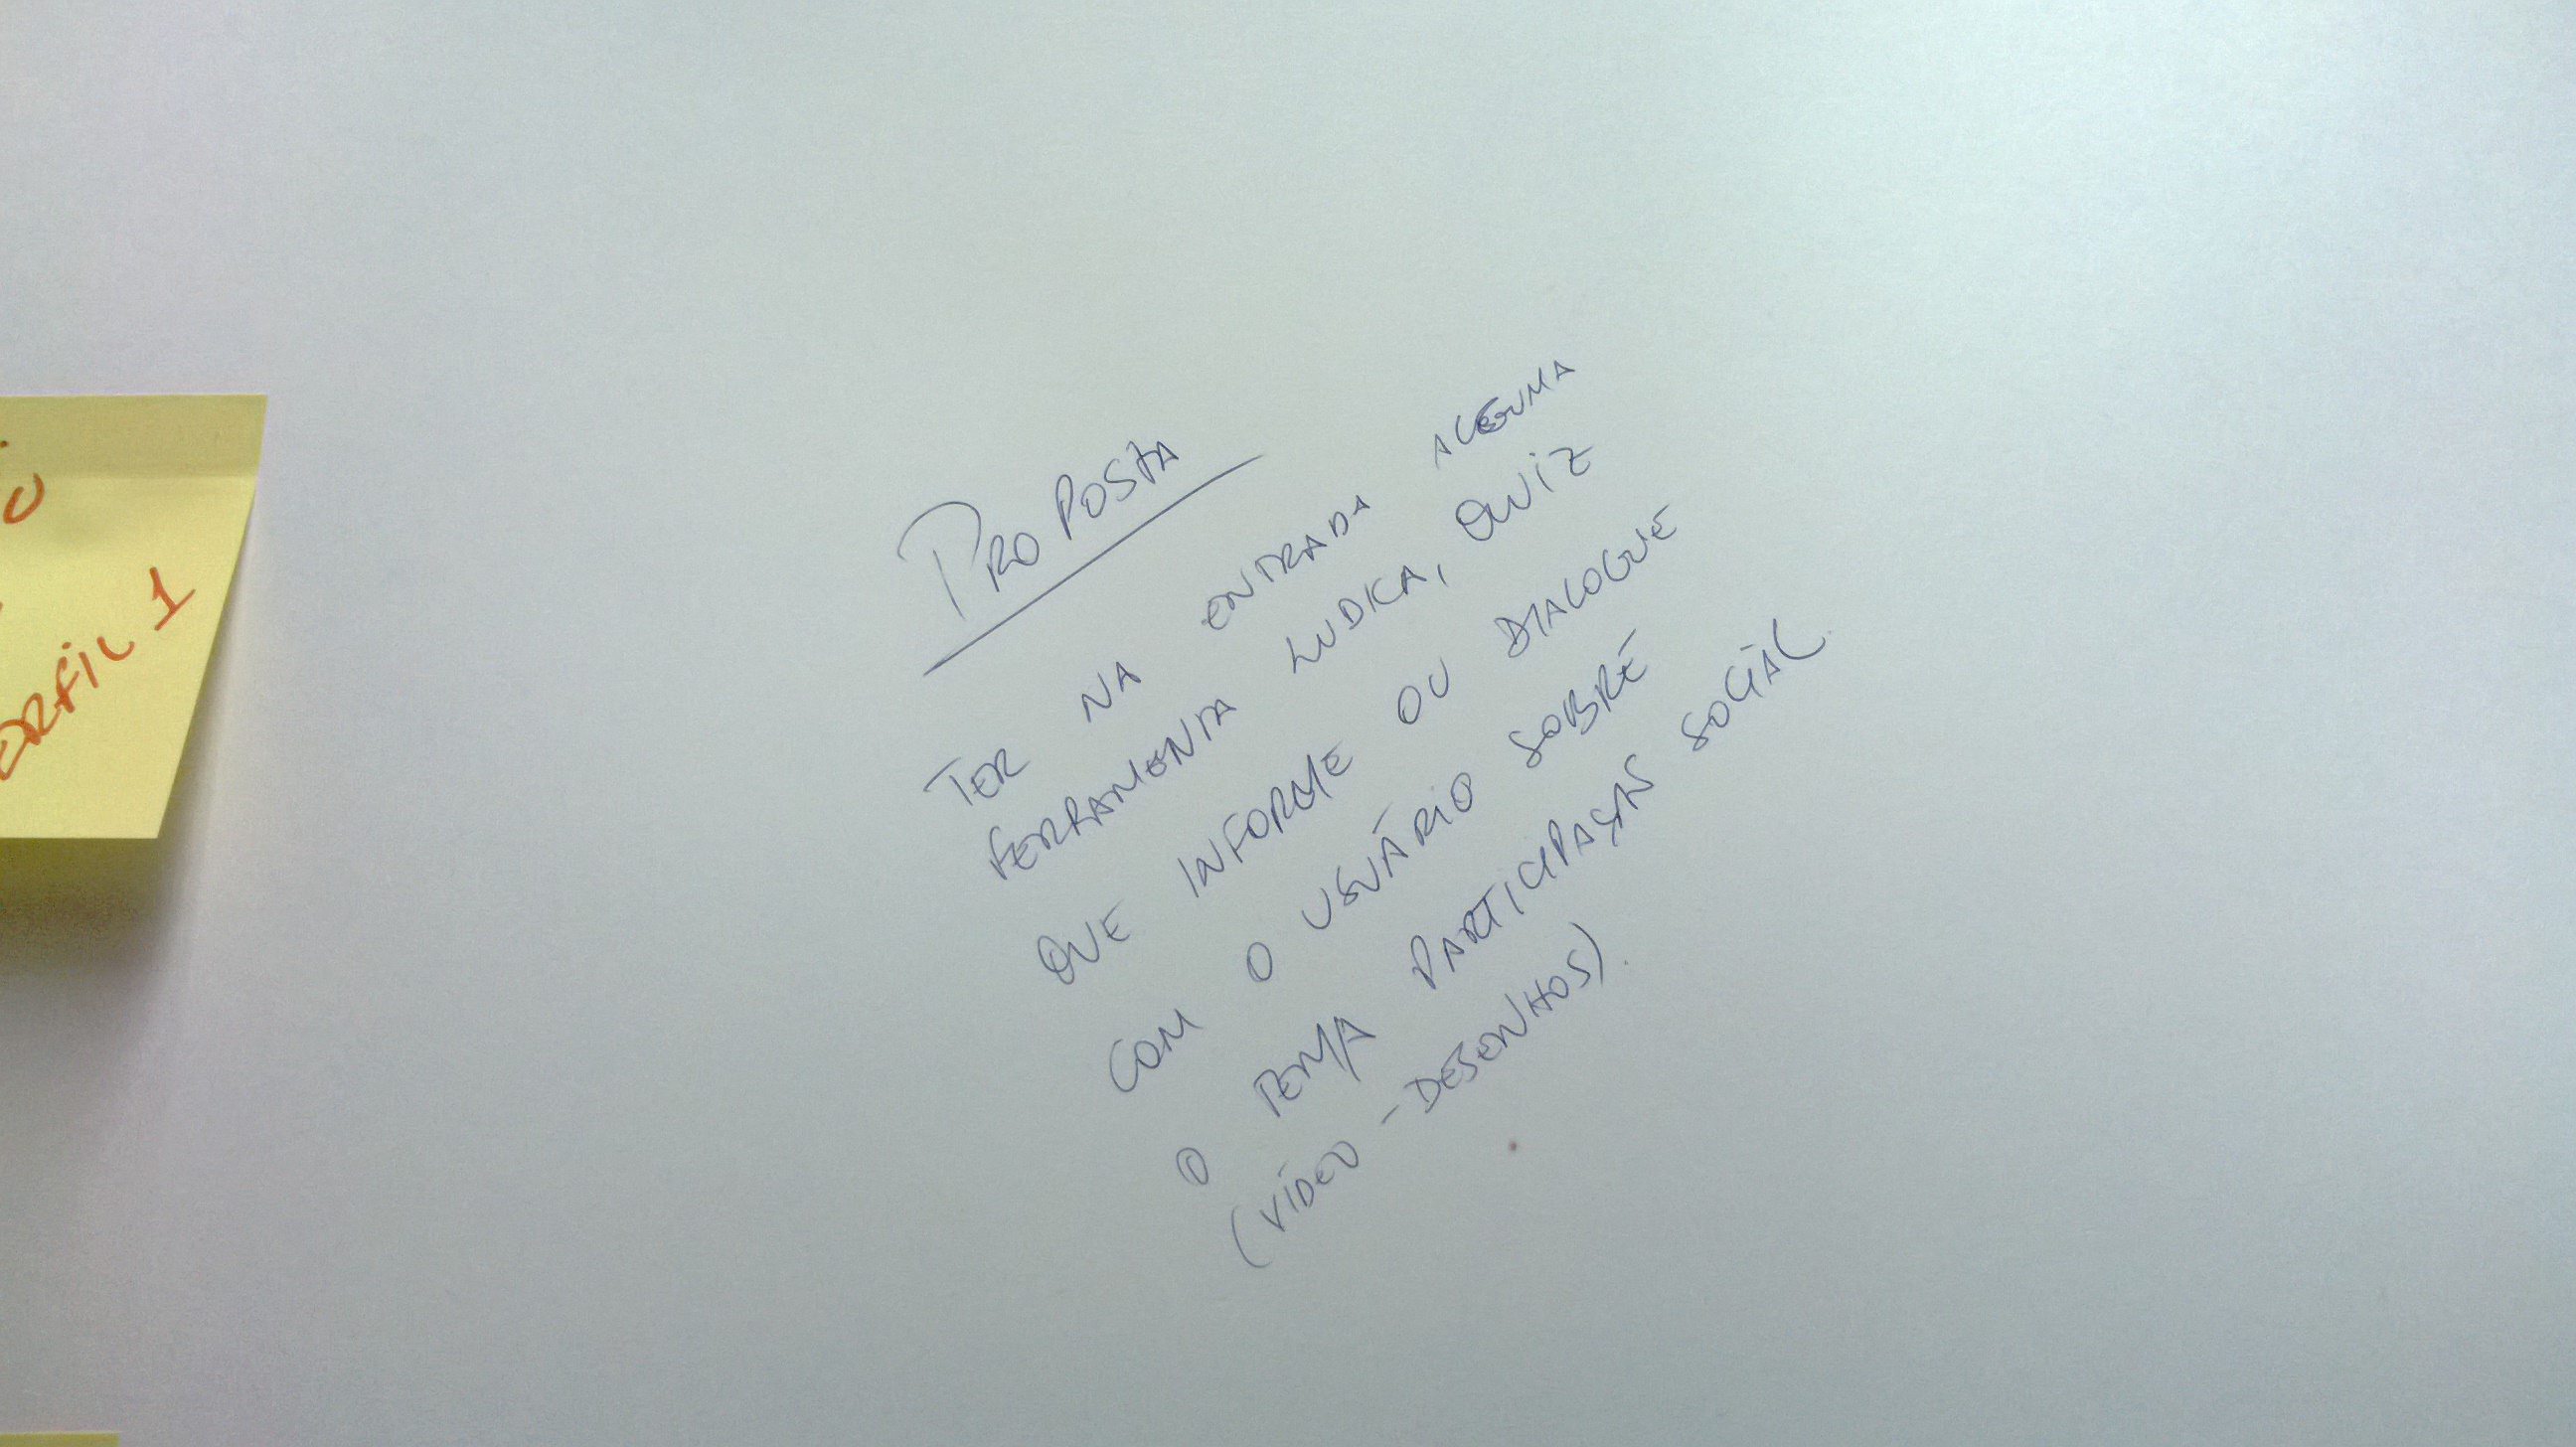 O
ERFIL 1
PROPOSTA
TER NA ENTRADA ALGUMA
FERRAMENTA LUDICA, QUIZ
QUE INFORME OU DIALOGUE
COM O USUÁRIO SOBRE
O TEMA PARTICIPAÇÃO SOCIAL
(VÍDEO - DESENHOS).